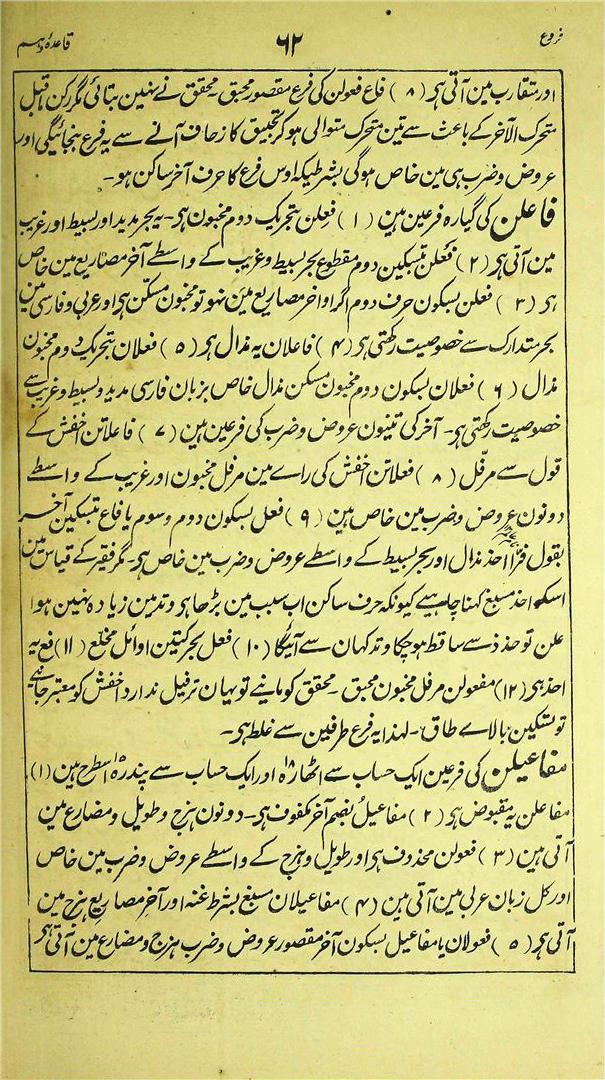 فروع ۶۲ قاعدۂ دہم
اور متقارب مین آتی ہر (۸) فاع فعولن کی فرع مقصور محبق۔ محقق نے نہین بتائی مگر رکن ماقبل
متحرک الآخر کے باعث سے تین متحرک متوالی ہو کر تحبیق کا زحاف آنے سے یہ فرع بنجائیگی اور
عروض و ضرب ہی مین خاص ہوگی بشرطیکہ اوس فرع کا حرف آخر ساکن ہو۔
فاعلن کی گیارہ فرعین ہین (۱) فعِلن بتحریک دوم مخبون ہی۔ یہ بحر مدید اور بسیط اور غریب
مین آتی ہر (۲) فعْلن بتسکین دوم مقطوع بحر بسیط و غریب کے واسطے آخر مصاریع مین خاص
ہر (۳) فعلن بسکون حرف دوم اگر اواخر مصاریع مین نہو تو مخبون مسکّن ہر اور عربی و فارسی مین
بحر متدارک سے خصوصیت رکھتی ہر (۴) فاعلان یہ مذال ہر (۵) فعلان بتحریک دوم مخبون
مذال (۶) فعلان بسکون دوم مخبون مسکن مذال خاص بزبان فارسی مدید و بسیط و غریب سے
خصوصیت رکھتی ہر۔ آخر کی تینون عروض و ضرب کی فرعین ہین (۷) فاعلاتن اخفش کے
قول سے مرفّل (۸) فعلاتن اخفش کی راے مین مرفل مخبون اور غریب کے واسطے
دونون عروض و ضرب مین خاص ہین (۹) فعل بسکون دوم و سوم یا فاع بتسکین آخر
بقول فرّا احذ مذال اور بحر بسیط کے واسطے عروض و ضرب مین خاص ہی۔ مگر فقیر کے قیاس مین
اسکو احذ مسبغ کہنا چاہیے کیونکہ حرف ساکن اب سبب مین بڑھا ہر وتد مین زیادہ نہین ہوا
علن تو حذذ سے ساقط ہو چکا وتد کہان سے آئیگا (۱۰) فعل بحرکتین اوائل مخلع (۱۱) فع یہ
احذ ہی (۱۲) مفعولن مرفل مخبون محبق۔ محقق کو مانیے تو یہان ترفیل ندارد اخفش کو معتبر جانیے
تو تسکین بالاے طاق۔ لہذا یہ فرع طرفین سے غلط ہی۔
مفاعیلن کی فرعین ایک حساب سے اٹھارہ ۱۸ اور ایک حساب سے پندرہ ۱۵ اسطرح ہین (۱)
مفاعلن یہ مقبوض ہر (۲) مفاعیلُ بضم آخر مکفوف ہی۔ دونون ہزج و طویل و مضارع مین
آتی ہین (۳) فعولن محذوف ہر اور طویل و ہزج کے واسطے عروض و ضرب مین خاص
اور کل زبان عربی مین آتی ہین (۴) مفاعیلان مسبغ بشرط غنہ اور آخر مصاریع ہزج مین
آتی ہر (۵) فعولان یا مفاعیل بسکون آخر مقصور عروض و ضرب ہزج و مضارع مین آتی ہر